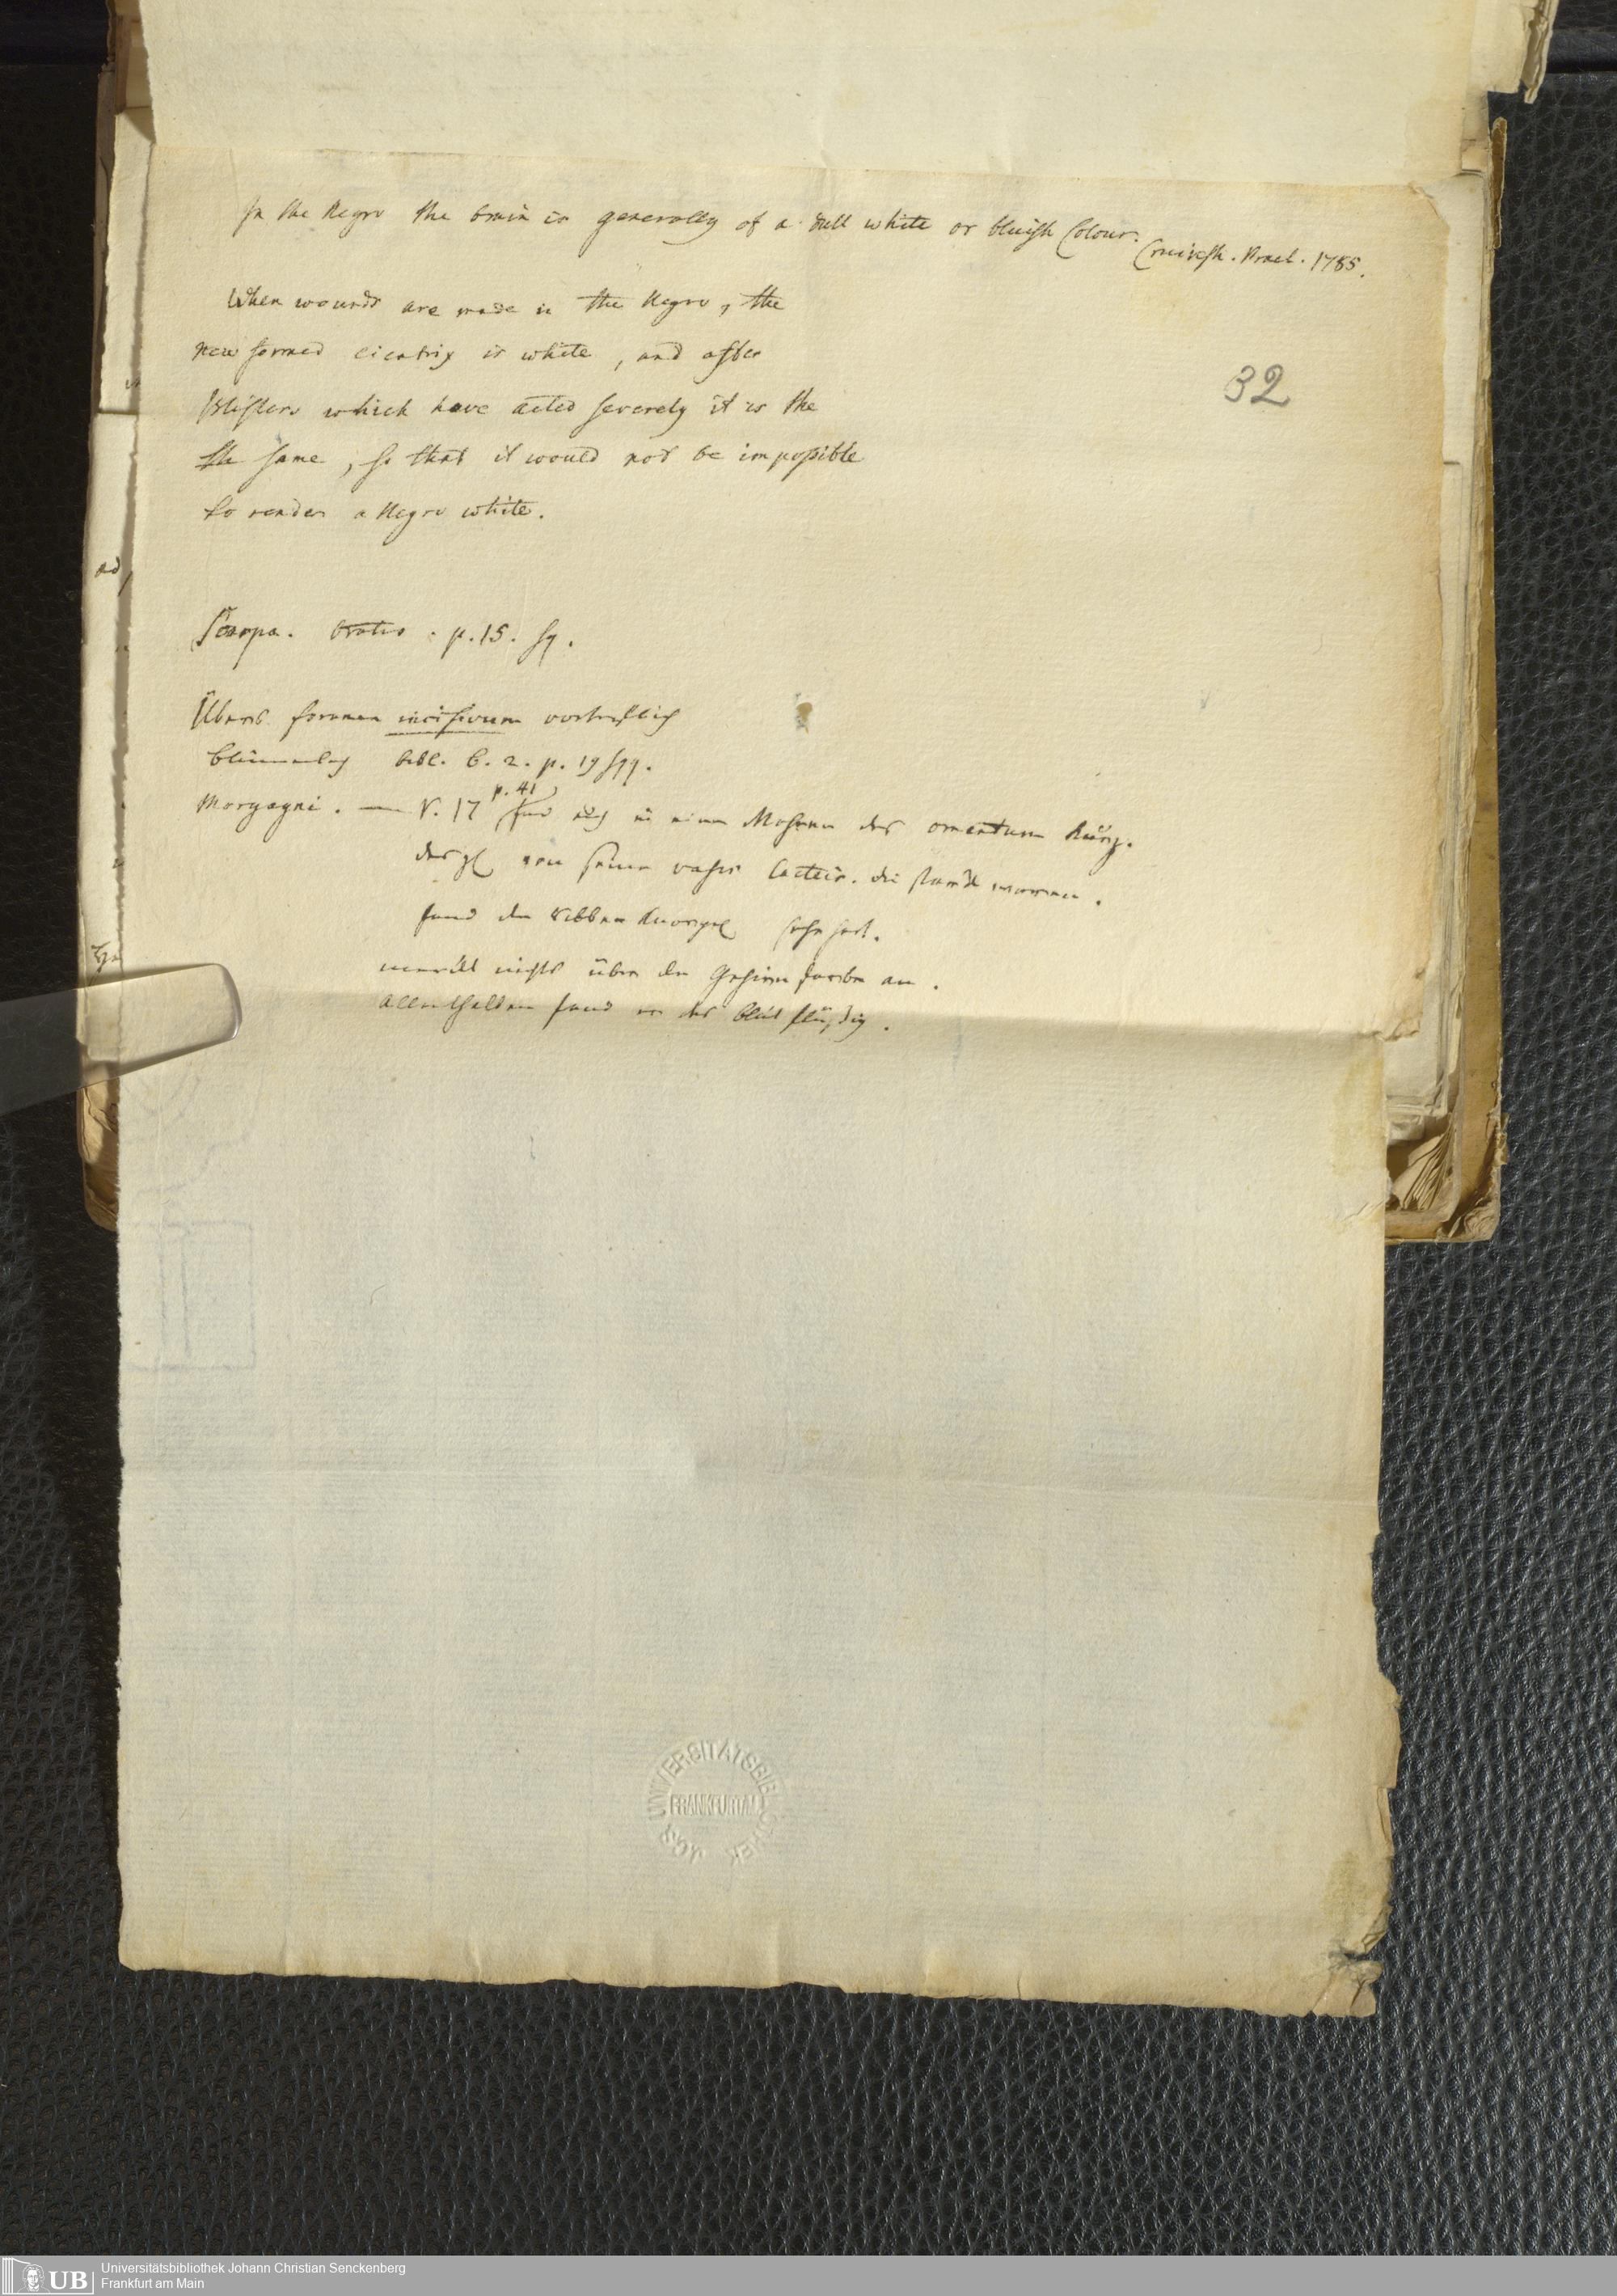 In the Negro the brain is generally of a dull white or bluish Colour.
Cruiksh. Prael. 1785.
When wounds are made in the Negro, the
new formed cicatrix is white, and after
blisters which have acted severely it is the
the same, so that it would not be impossible
to render a Negro white.
32
Scarpa. Oratio. p. 15. sq.
Übers foramen incisivum vortreflich
Blumenbach bibl. B. 2. p. 19 sqq.
p. 41
Morgagni. — V. 17 fand auch in einem Mohren das omentum kurz.
desgl von seinen vasis lacteis. die starck waren.
fand die Ribben Knorpel sehr hart.
merckt nichts über die Gehirn farbe an.
allenthalben fand er das blut flüssig.
ad
UNIVERSITÄTSBIBLIOTHEK
FRANKFURT/M.
UB
Universitätsbibliothek Johann Christian Senckenberg
Frankfurt am Main